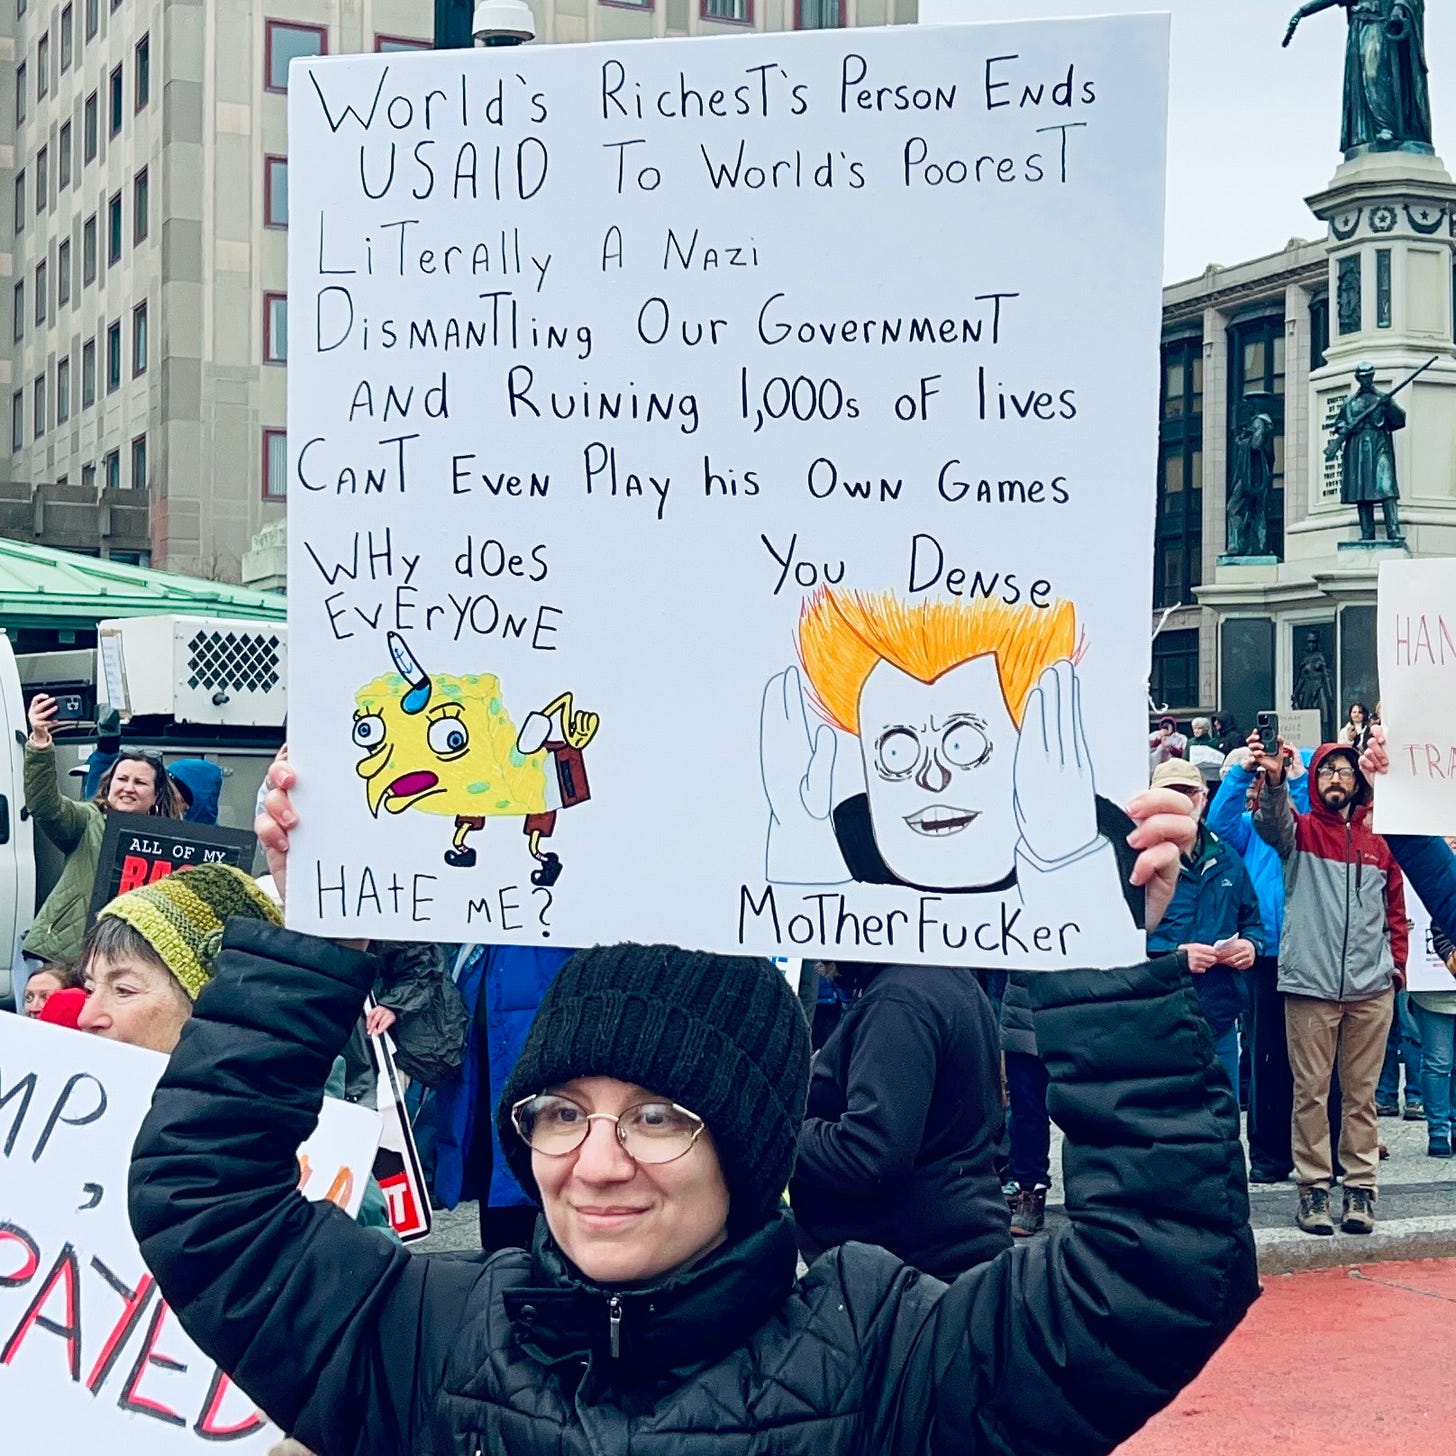 World's Richest's Person Ends
USAID To World's Poorest
Literally A Nazi
Dismantling Our Government
and Ruining 1,000s of lives
Can't Even Play his Own Games
Why does
Everyone
Hate me?
You Dense
MotherFucker
ALL OF MY
MP,
PAYED
HAN
TRA